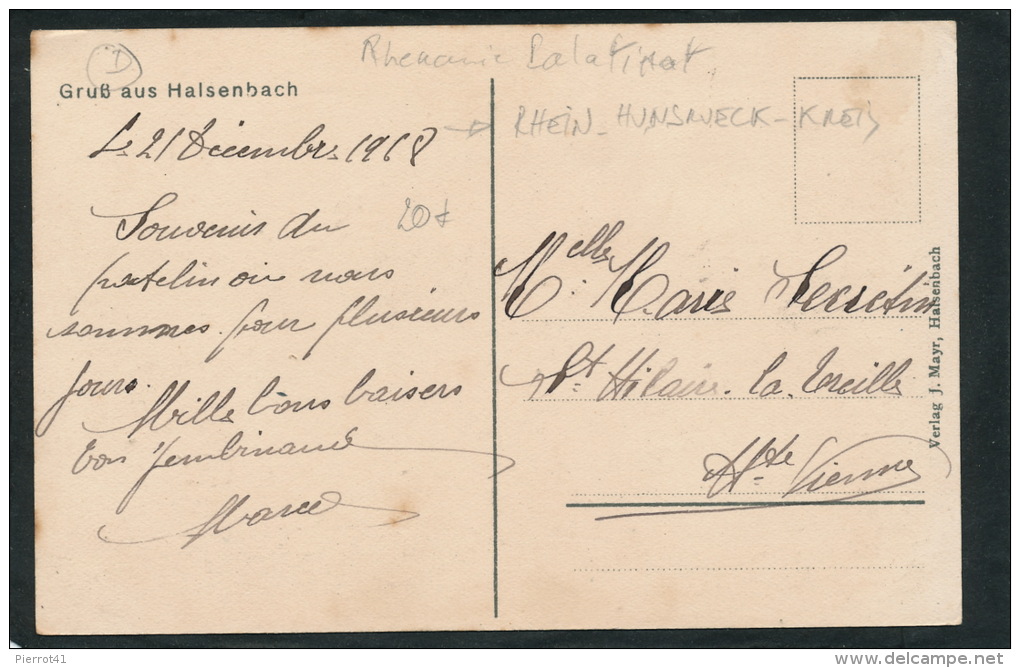 D
Gruß aus Halsenbach
Rhenanie Palatinat
RHEIN-HUNSRUECK-KREIS
Le 21 Décembre 1918
20
Souvenir du
patelin où nous
sommes pour plusieurs
jours.
Mille bons baisers
Ton
Marcel
Melle Marie
St Hilaire la Treille
Hte Vienne
Verlag J. Mayr, Halsenbach
Pierrot41
www.delcampe.net